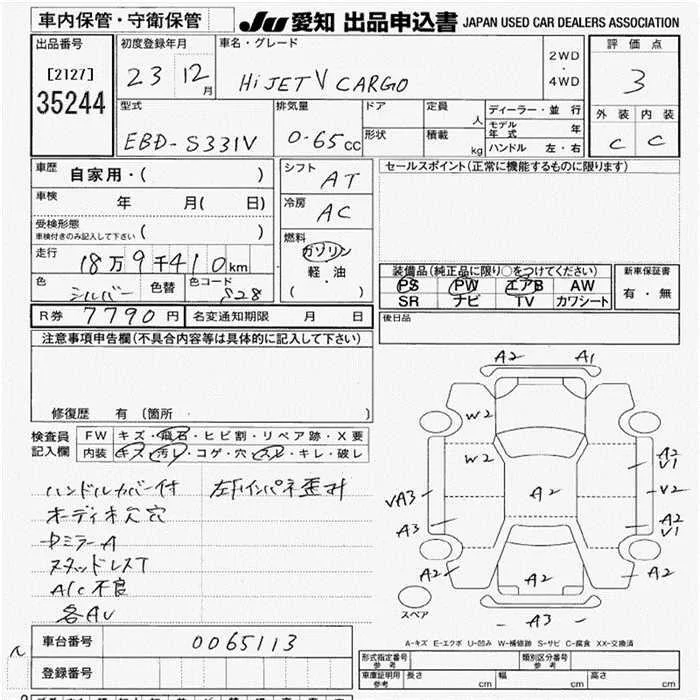 車内保管・守衛保管
JU 愛知 出品申込書 JAPAN USED CAR DEALERS ASSOCIATION
出品番号
[2127]
35244
初度登録年月
23 12月
車名・グレード
HiJET V CARGO
2WD
・
4WD
評価点
3
外装 内装
C C
型式
EBD-S331V
排気量
0-65cc
ドア
形状
定員 人
積載 kg
ディーラー・並行
モデル年式 年
ハンドル 左・右
車歴
自家用・( )
車検
年 月( 日)
受検形態
車検付きのみ記入して下さい ( )
走行
18万9千410km
色 シルバー 色替 色コード S28
シフト
AT
冷房
AC
燃料
ガソリン
軽・油
( )
セールスポイント(正常に機能するものに限ります)
装備品(純正品に限り○をつけてください)
PS PW エアB AW
SR ナビ TV カワシート
新車保証書
有・無
後日品
R券 7790円 名変通知期限 月 日
注意事項申告欄(不具合内容等は具体的に記入して下さい)
修復歴 有(箇所・ )
検査員記入欄
FW キズ・飛石・ヒビ割・リペア跡・X要
内装 キズ・汚レ・コゲ・穴・スレ・キレ・破レ
ハンドルカバー付 左下インパネ歪ミ
オーディオ穴
中ミラーA
スタッドレスT
A/C不良
各AU
A2 A1
W2
W2
A2 V1
VA3
A2
V2
A3
A2 V1
A2
A2
A2
スペア
A3
A-キズ E-エクボ U-凹み W-補修跡 S-サビ C-腐食 XX-交換済
車台番号 0065113
登録番号
形式指定番号 参考
類別区分番号 参考
車庫証明用 参考 長さ cm 幅 cm 高さ cm